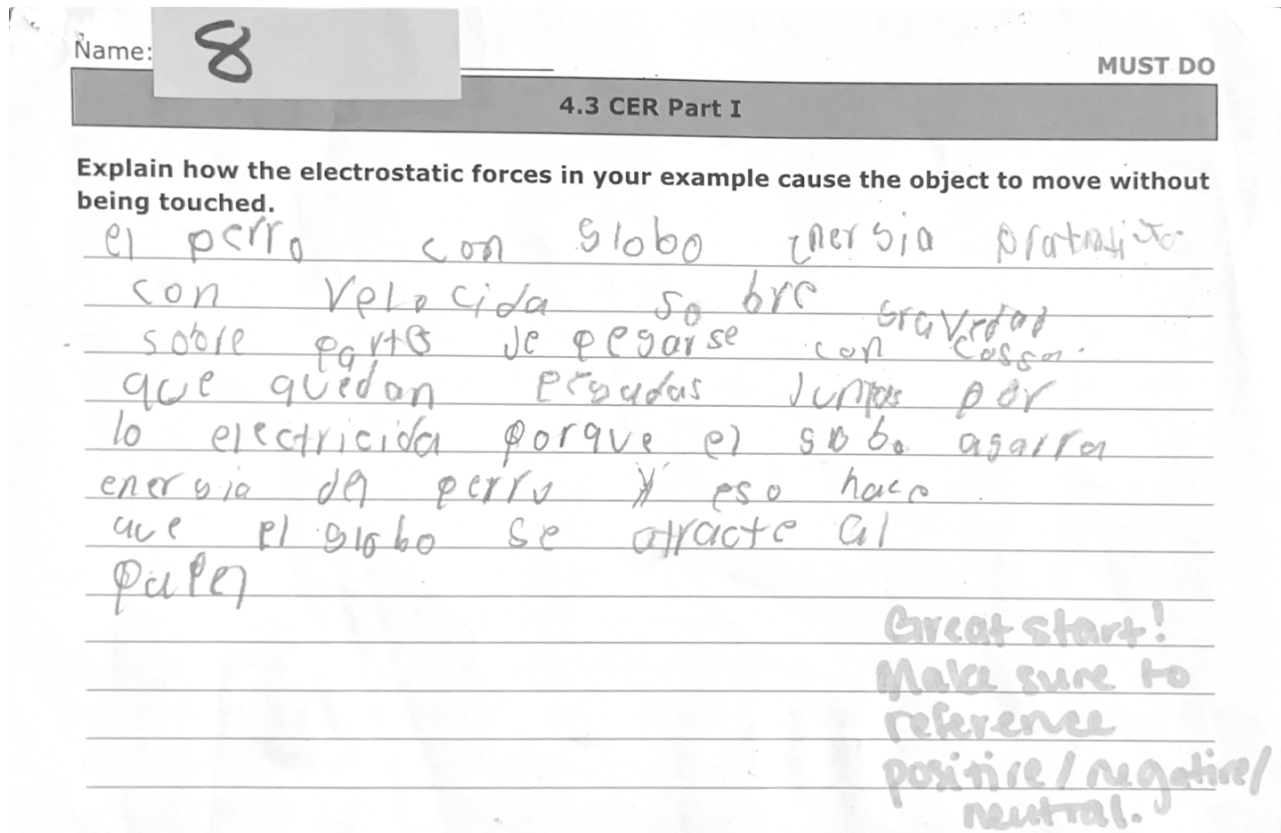 Name: 8
MUST DO
4.3 CER Part I
Explain how the electrostatic forces in your example cause the object to move without
being touched.
el perro con globo inersia
con Velocida sobre gravedad
sobre parte de pegarse con cossa.
que quedan pegadas Juntas por
lo electricida porque el globo agarra
energia del perro y eso hace
que el globo se atracte al
papel
Great start!
Make sure to
reference
positive/negative/
neutral.